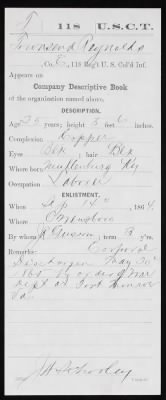 T 118 U.S.C.T.
Townsend Reynolds
Co. E, 118 Reg't U. S. Col'd Inf.
Appears on
Company Descriptive Book
of the organization named above.
DESCRIPTION.
Age 25 years; height 5 feet 6 inches.
Complexion Copper
Eyes Blk; hair Blk
Where born Muhlenburg Ky
Occupation Laborer
ENLISTMENT.
When Sep 14", 1864.
Where Owensboro
By whom J R Grissom; term 3 y'rs.
Remarks: Corporal
Discharged May 30"
1865 by order of War
Dept at Fort Monroe
Va